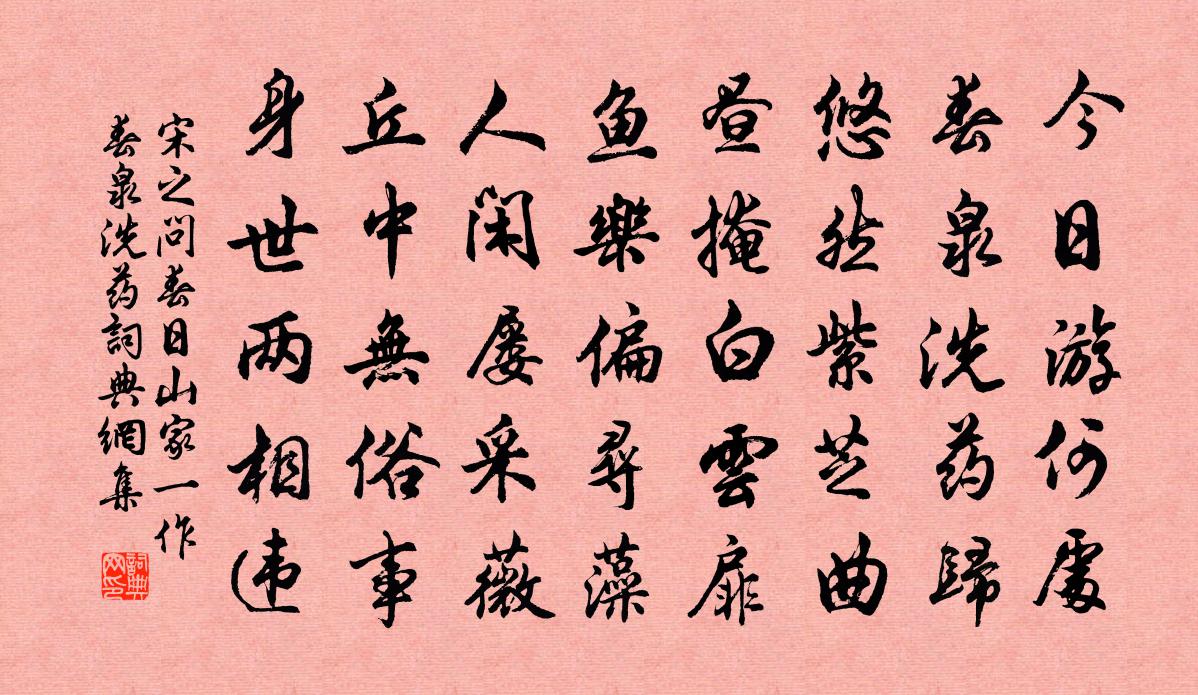 今日游何處
春泉洗药歸
悠然紫芝曲
昼掩白雲扉
鱼樂偏尋藻
人闲屡采薇
丘中無俗事
身世两相违
宋之问春日山家一作
春泉洗药詞典網集
詞典
网印